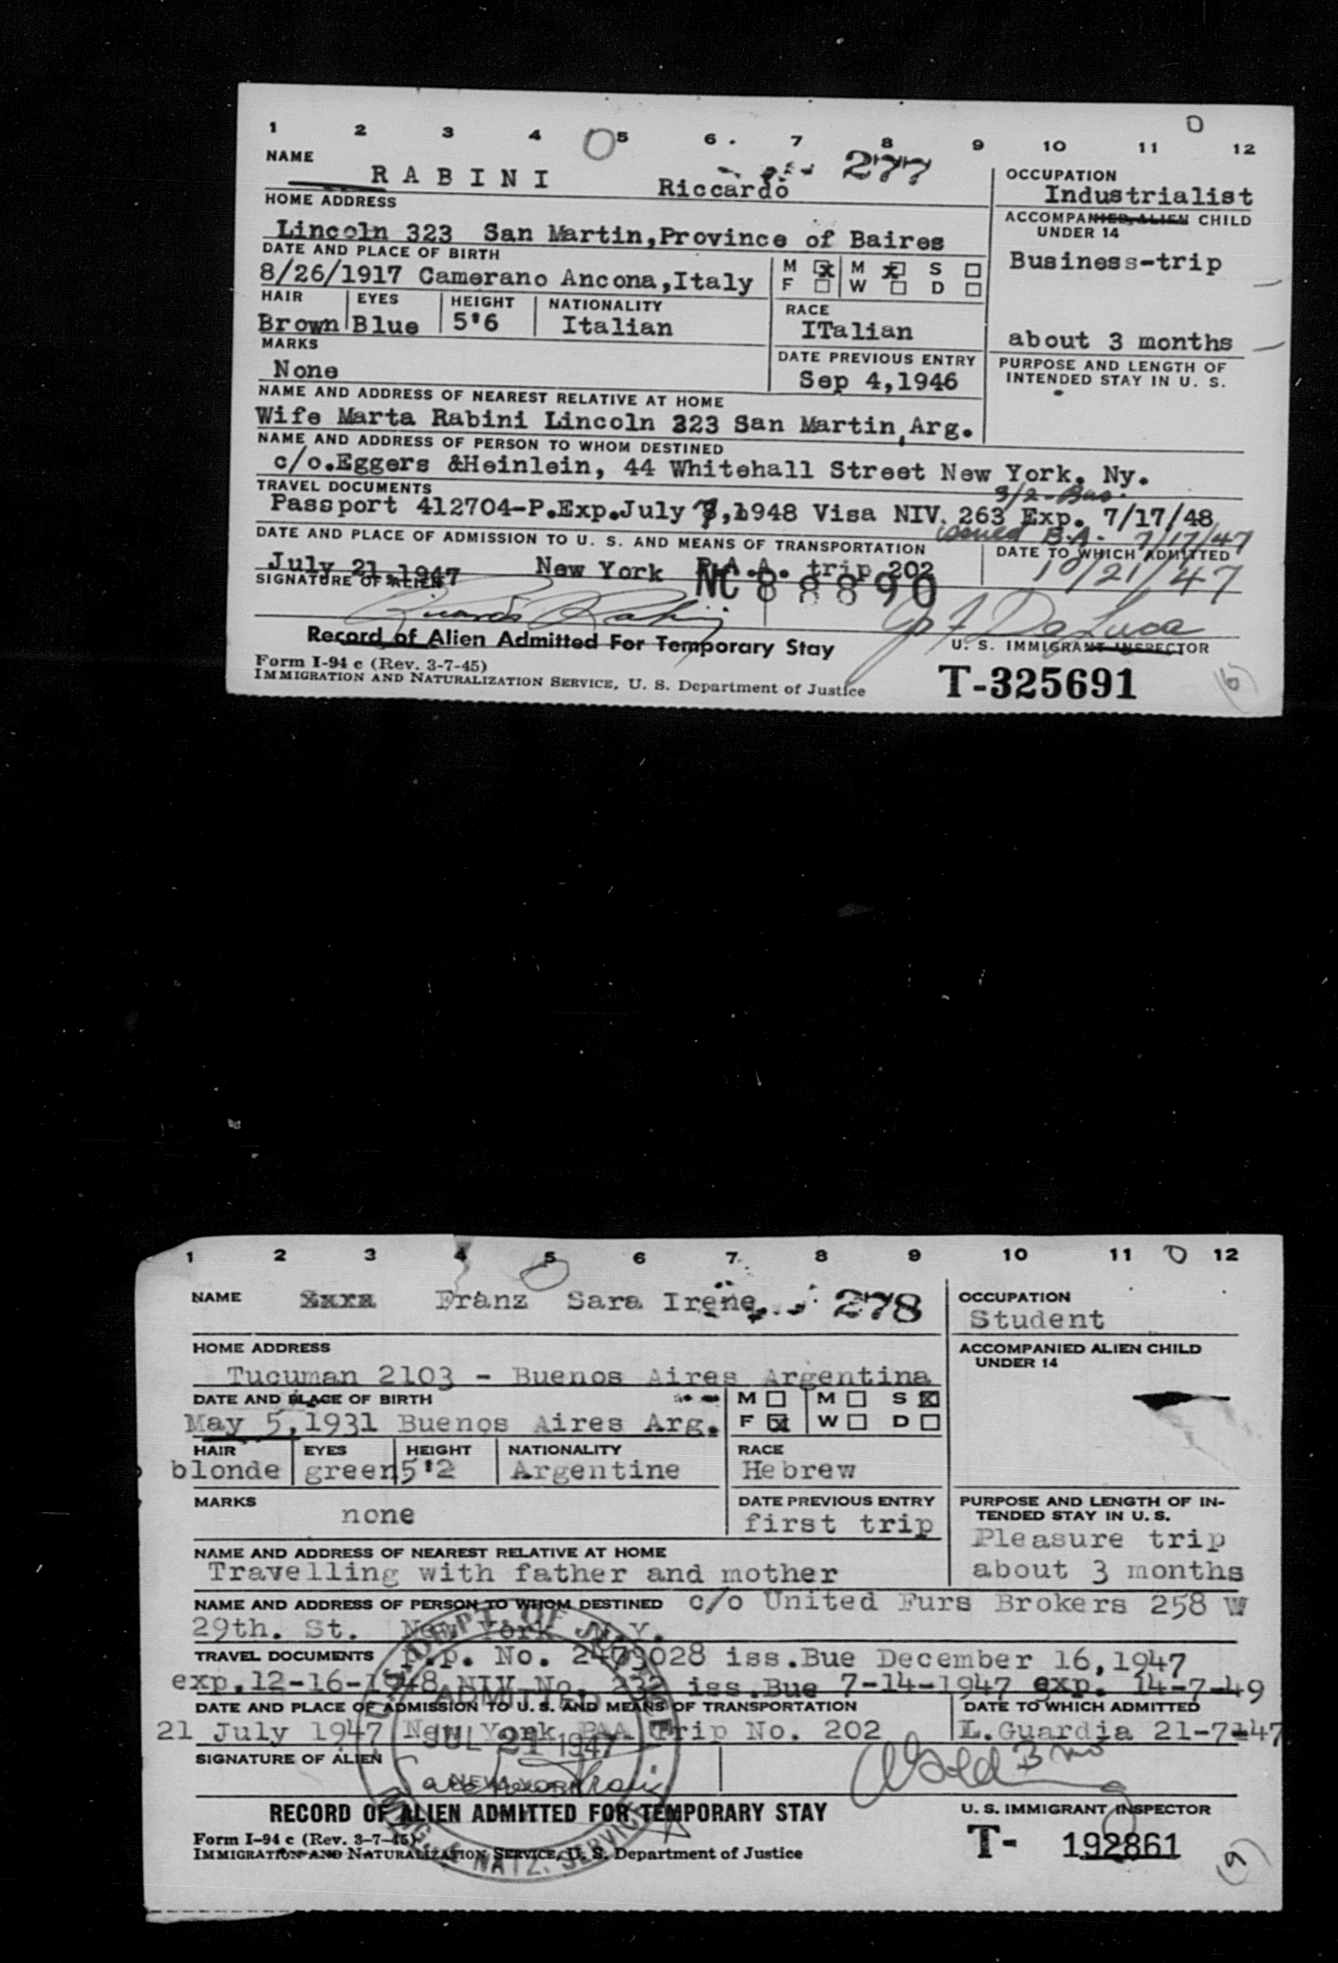 1 2 3 4 5 6 7 8 9 10 11 12
NAME
RABINI Riccardo 277
OCCUPATION
Industrialist
HOME ADDRESS
Lincoln 323 San Martin,Province of Baires
ACCOMPANIED ALIEN CHILD
UNDER 14
DATE AND PLACE OF BIRTH
8/26/1917 Camerano Ancona,Italy
M M S
F W D
Business-trip
HAIR EYES HEIGHT NATIONALITY RACE
Brown Blue 5'6 Italian ITalian
about 3 months
MARKS
None
DATE PREVIOUS ENTRY
Sep 4,1946
PURPOSE AND LENGTH OF
INTENDED STAY IN U. S.
NAME AND ADDRESS OF NEAREST RELATIVE AT HOME
Wife Marta Rabini Lincoln 323 San Martin,Arg.
NAME AND ADDRESS OF PERSON TO WHOM DESTINED
c/o.Eggers &Heinlein, 44 Whitehall Street New York. Ny.
TRAVEL DOCUMENTS 3/2-Bus.
Passport 412704-P.Exp.July 7,1948 Visa NIV. 263 Exp. 7/17/48
issued B.A. 7/17/47
DATE AND PLACE OF ADMISSION TO U. S. AND MEANS OF TRANSPORTATION
DATE TO WHICH ADMITTED
July 21,1947 New York P.A.A. trip 202
10/21/47
NC 88890
SIGNATURE OF ALIEN
Riccardo Rabini
Record of Alien Admitted For Temporary Stay
U. S. IMMIGRANT INSPECTOR
Form I-94 c (Rev. 3-7-45)
IMMIGRATION AND NATURALIZATION SERVICE, U. S. Department of Justice
T-325691
(6)
1 2 3 4 5 6 7 8 9 10 11 12
NAME Franz Sara Irene 278
OCCUPATION
Student
HOME ADDRESS
Tucuman 2103 - Buenos Aires Argentina
ACCOMPANIED ALIEN CHILD
UNDER 14
DATE AND PLACE OF BIRTH
May 5,1931 Buenos Aires Arg.
M M S
F W D
HAIR EYES HEIGHT NATIONALITY RACE
blonde green 5'2 Argentine Hebrew
MARKS
none
DATE PREVIOUS ENTRY
first trip
PURPOSE AND LENGTH OF IN-
TENDED STAY IN U. S.
Pleasure trip
about 3 months
NAME AND ADDRESS OF NEAREST RELATIVE AT HOME
Travelling with father and mother
NAME AND ADDRESS OF PERSON TO WHOM DESTINED c/o United Furs Brokers 258 W
29th. St. New York N.Y.
TRAVEL DOCUMENTS p.p. No. 2409028 iss.Bue December 16,1947
exp.12-16-1948 NIV No. iss.Bue 7-14-1947 exp. 14-7-49
DATE AND PLACE OF ADMISSION TO U. S. AND MEANS OF TRANSPORTATION
DATE TO WHICH ADMITTED
21 July 1947 New York PAA Trip No. 202
L.Guardia 21-7-47
U. S. DEPT. OF JUSTICE
ADMITTED
JUL 21 1947
NEW YORK
IMMIG. & NATZ. SERVICE
SIGNATURE OF ALIEN
RECORD OF ALIEN ADMITTED FOR TEMPORARY STAY
U. S. IMMIGRANT INSPECTOR
Form I-94 c (Rev. 3-7-45)
IMMIGRATION AND NATURALIZATION SERVICE, U. S. Department of Justice
T- 192861
(9)